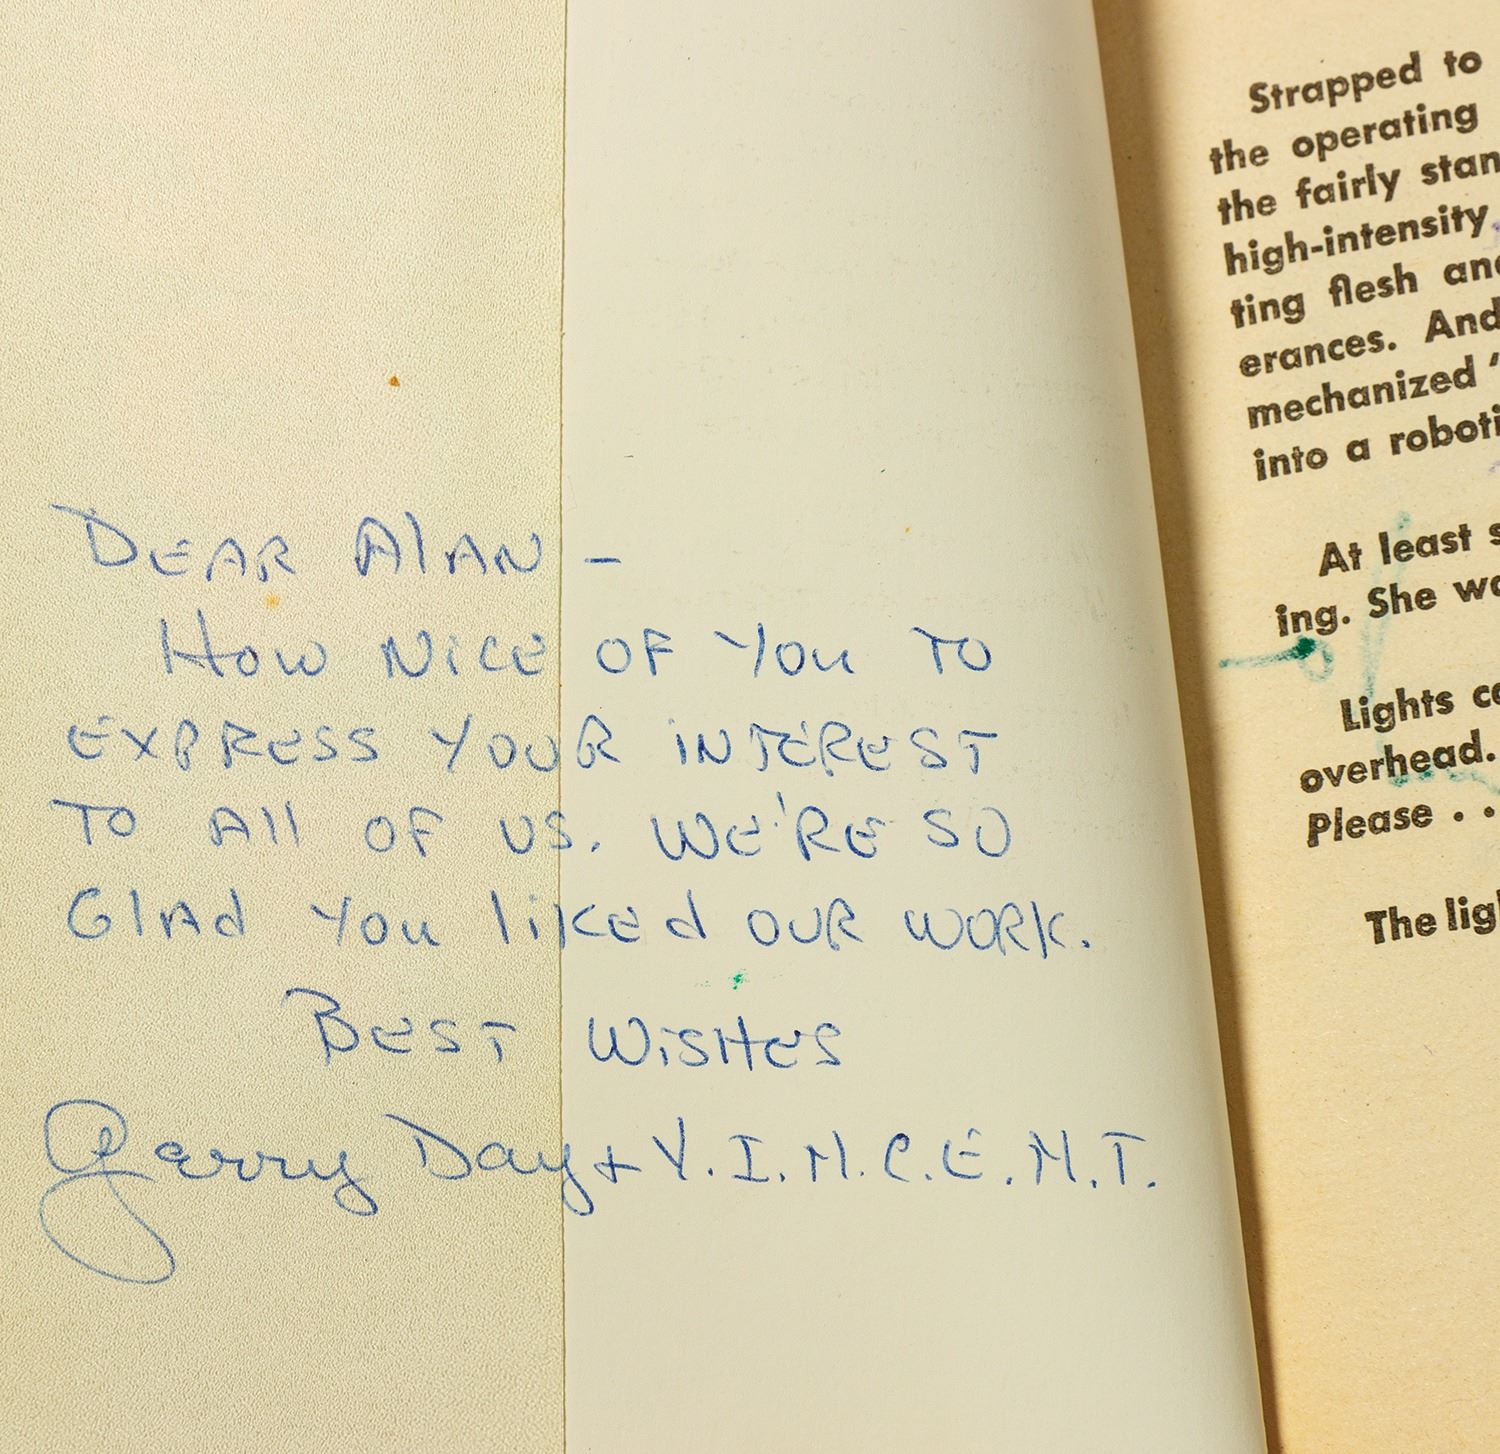 DEAR AlAN –
How NiCE OF You TO
EXPRESS YOUR iNTEREST
TO All OF US. WE'RE SO
GlAd You likEd OUR WORK.
BEST WiSHES
Gerry Day + V.I.N.C.E.N.T.
Strapped to
the operating
the fairly stan
high-intensity
ting flesh and
erances. And
mechanized "
into a roboti
At least s
ing. She wa
Lights co
overhead.
Please . .
The ligh